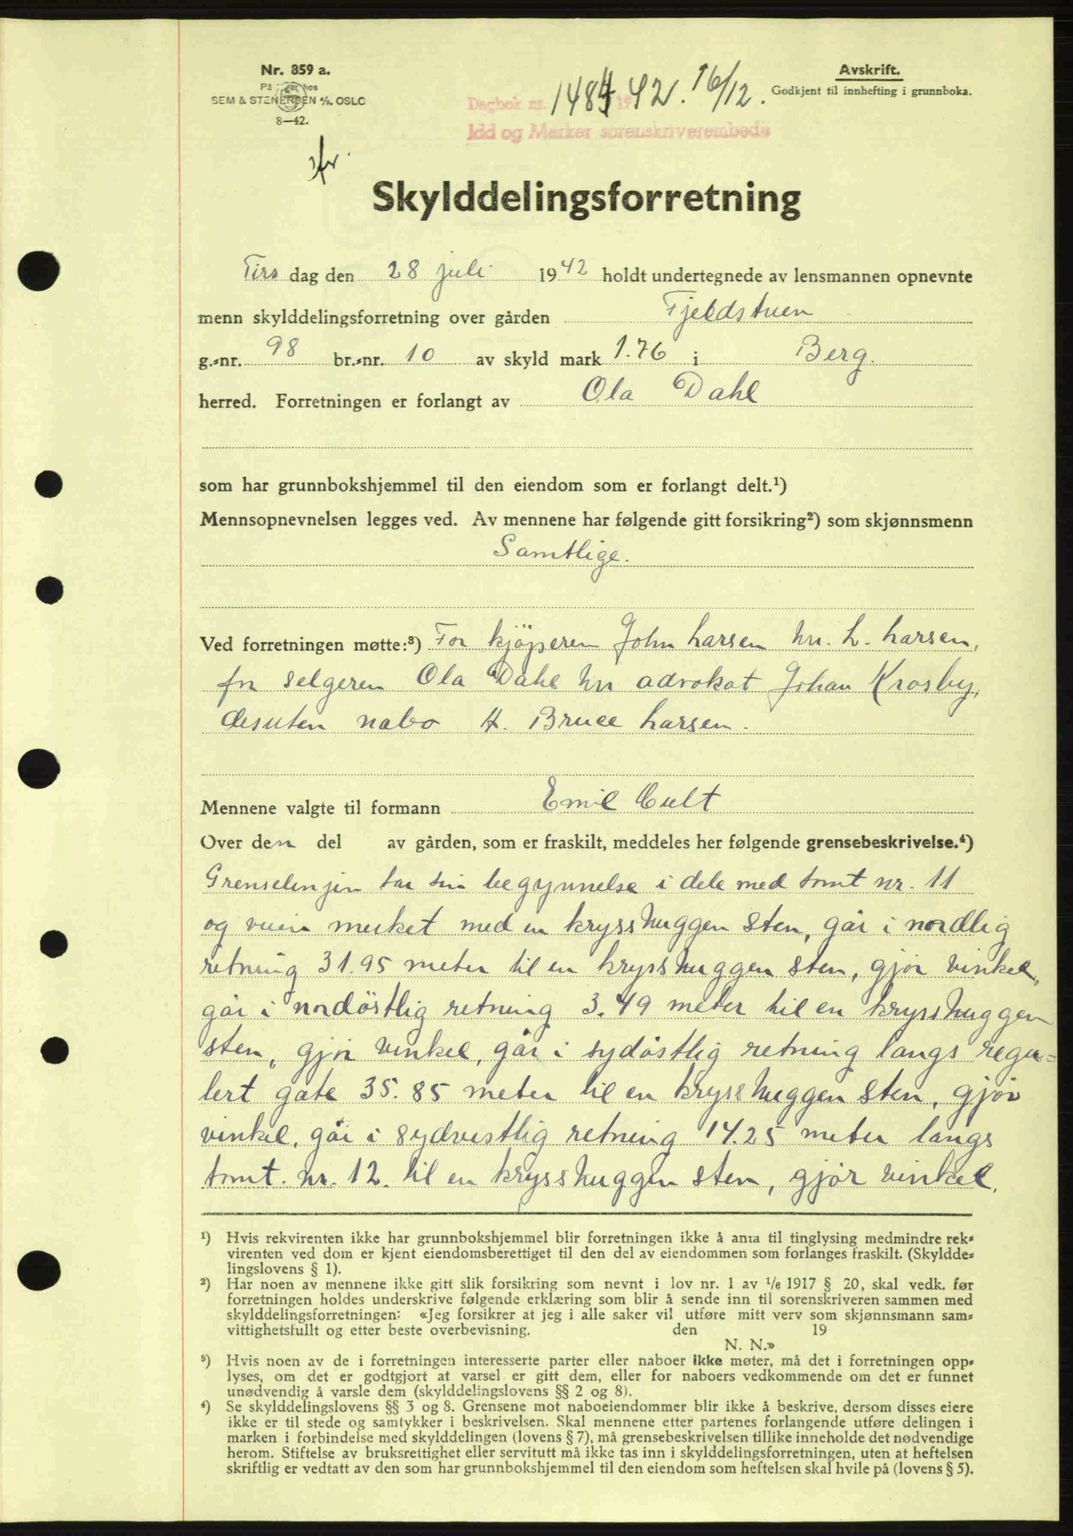 Nr. 859 a.
På lager hos
SEM & STENERSEN A/S, OSLO
8—42.
Avskrift.
Godkjent til innhefting i grunnboka.
Dagbok nr. 1484 19 42. 16/12.
Idd og Marker sorenskriverembede
Skylddelingsforretning
Tirs dag den 28 juli 1942 holdt undertegnede av lensmannen opnevnte
menn skylddelingsforretning over gården Fjeldstuen
g.-nr. 98 br.-nr. 10 av skyld mark 1.76 i Berg.
herred. Forretningen er forlangt av Ola Dahl
som har grunnbokshjemmel til den eiendom som er forlangt delt.¹)
Mennsopnevnelsen legges ved. Av mennene har følgende gitt forsikring²) som skjønnsmenn
Samtlige.
Ved forretningen møtte:³) For kjöperen John Larsen hr. L. Larsen,
for selgeren Ola Dahl hr advokat Johan Krosby,
desuten nabo H. Bruce Larsen.
Mennene valgte til formann Emil Hult
Over den del av gården, som er fraskilt, meddeles her følgende grensebeskrivelse.⁴)
Grenselinjen tar sin begynnelse i dele med tomt nr. 11
og veien merket med en krysshuggen sten, går i nordlig
retning 31.95 meter til en krysshuggen sten, gjör vinkel,
går i nordöstlig retning 3.49 meter til en krysshuggen
sten, gjör vinkel, går i sydöstlig retning langs regu=
lert gate 35.85 meter til en krysshuggen sten, gjör
vinkel, går i sydvestlig retning 14.25 meter langs
tomt. nr. 12. til en krysshuggen sten, gjör vinkel,
¹) Hvis rekvirenten ikke har grunnbokshjemmel blir forretningen ikke å anta til tinglysing medmindre rek-
virenten ved dom er kjent eiendomsberettiget til den del av eiendommen som forlanges fraskilt. (Skyldde-
lingslovens § 1).
²) Har noen av mennene ikke gitt slik forsikring som nevnt i lov nr. 1 av 1/6 1917 § 20, skal vedk. før
forretningen holdes underskrive følgende erklæring som blir å sende inn til sorenskriveren sammen med
skylddelingsforretningen: «Jeg forsikrer at jeg i alle saker vil utføre mitt verv som skjønnsmann sam-
vittighetsfullt og etter beste overbevisning. den 19
N. N.»
³) Hvis noen av de i forretningen interesserte parter eller naboer ikke møter, må det i forretningen opp-
lyses, om det er godtgjort at varsel er gitt dem, eller for naboers vedkommende om det er funnet
unødvendig å varsle dem (skylddelingslovens §§ 2 og 8).
⁴) Se skylddelingslovens §§ 3 og 8. Grensene mot naboeiendommer blir ikke å beskrive, dersom disses eiere
ikke er til stede og samtykker i beskrivelsen. Skal mennene etter partenes forlangende utføre delingen i
marken i forbindelse med skylddelingen (lovens § 7), må grensebeskrivelsen tillike inneholde det nødvendige
herom. Stiftelse av bruksrettighet eller servitutt må ikke tas inn i skylddelingsforretningen, uten at heftelsen
skriftlig er vedtatt av den som har grunnbokshjemmel til den eiendom som heftelsen skal hvile på (lovens § 5).